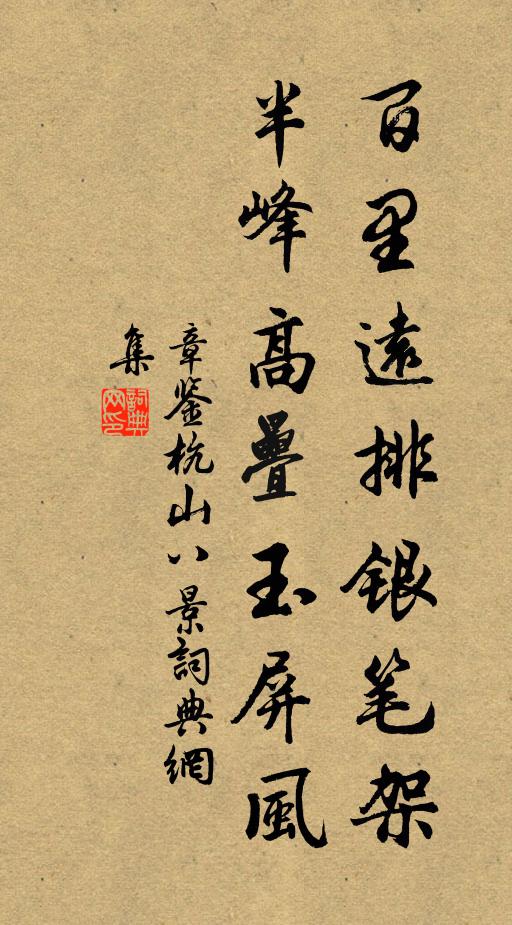 百里遠排銀笔架
半峰高疊玉屏風
章鉴杭山八景詞典網
集
詞典
网印